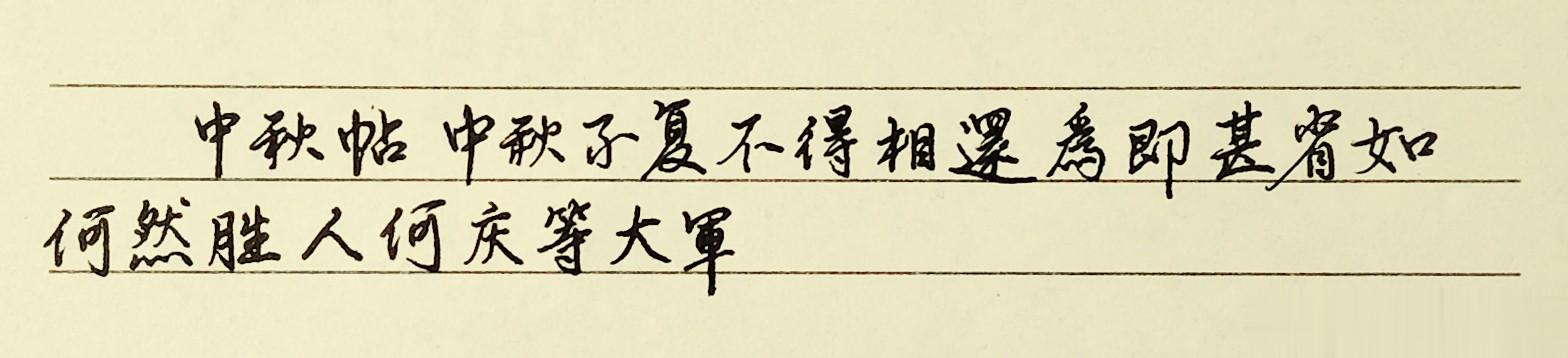 中秋帖 中秋不复不得相還為即甚省如
何然胜人何庆等大軍